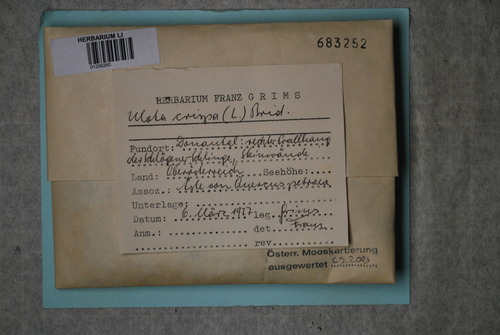 HERBARIUM LI
683252
HERBARIUM FRANZ GRIMS
Ulota crispa (L.) Brid.
Fundort: Donautal: rechter Prallhang
der Schlögener Schlinge, Steinwände
Land: Oberösterreich Seehöhe:
Assoz.: Äste von Quercus petraea
Unterlage:
Datum: 6. März 1977 leg. Grims
Anm.: det. Franz
rev.
Österr. Mooskartierung
ausgewertet